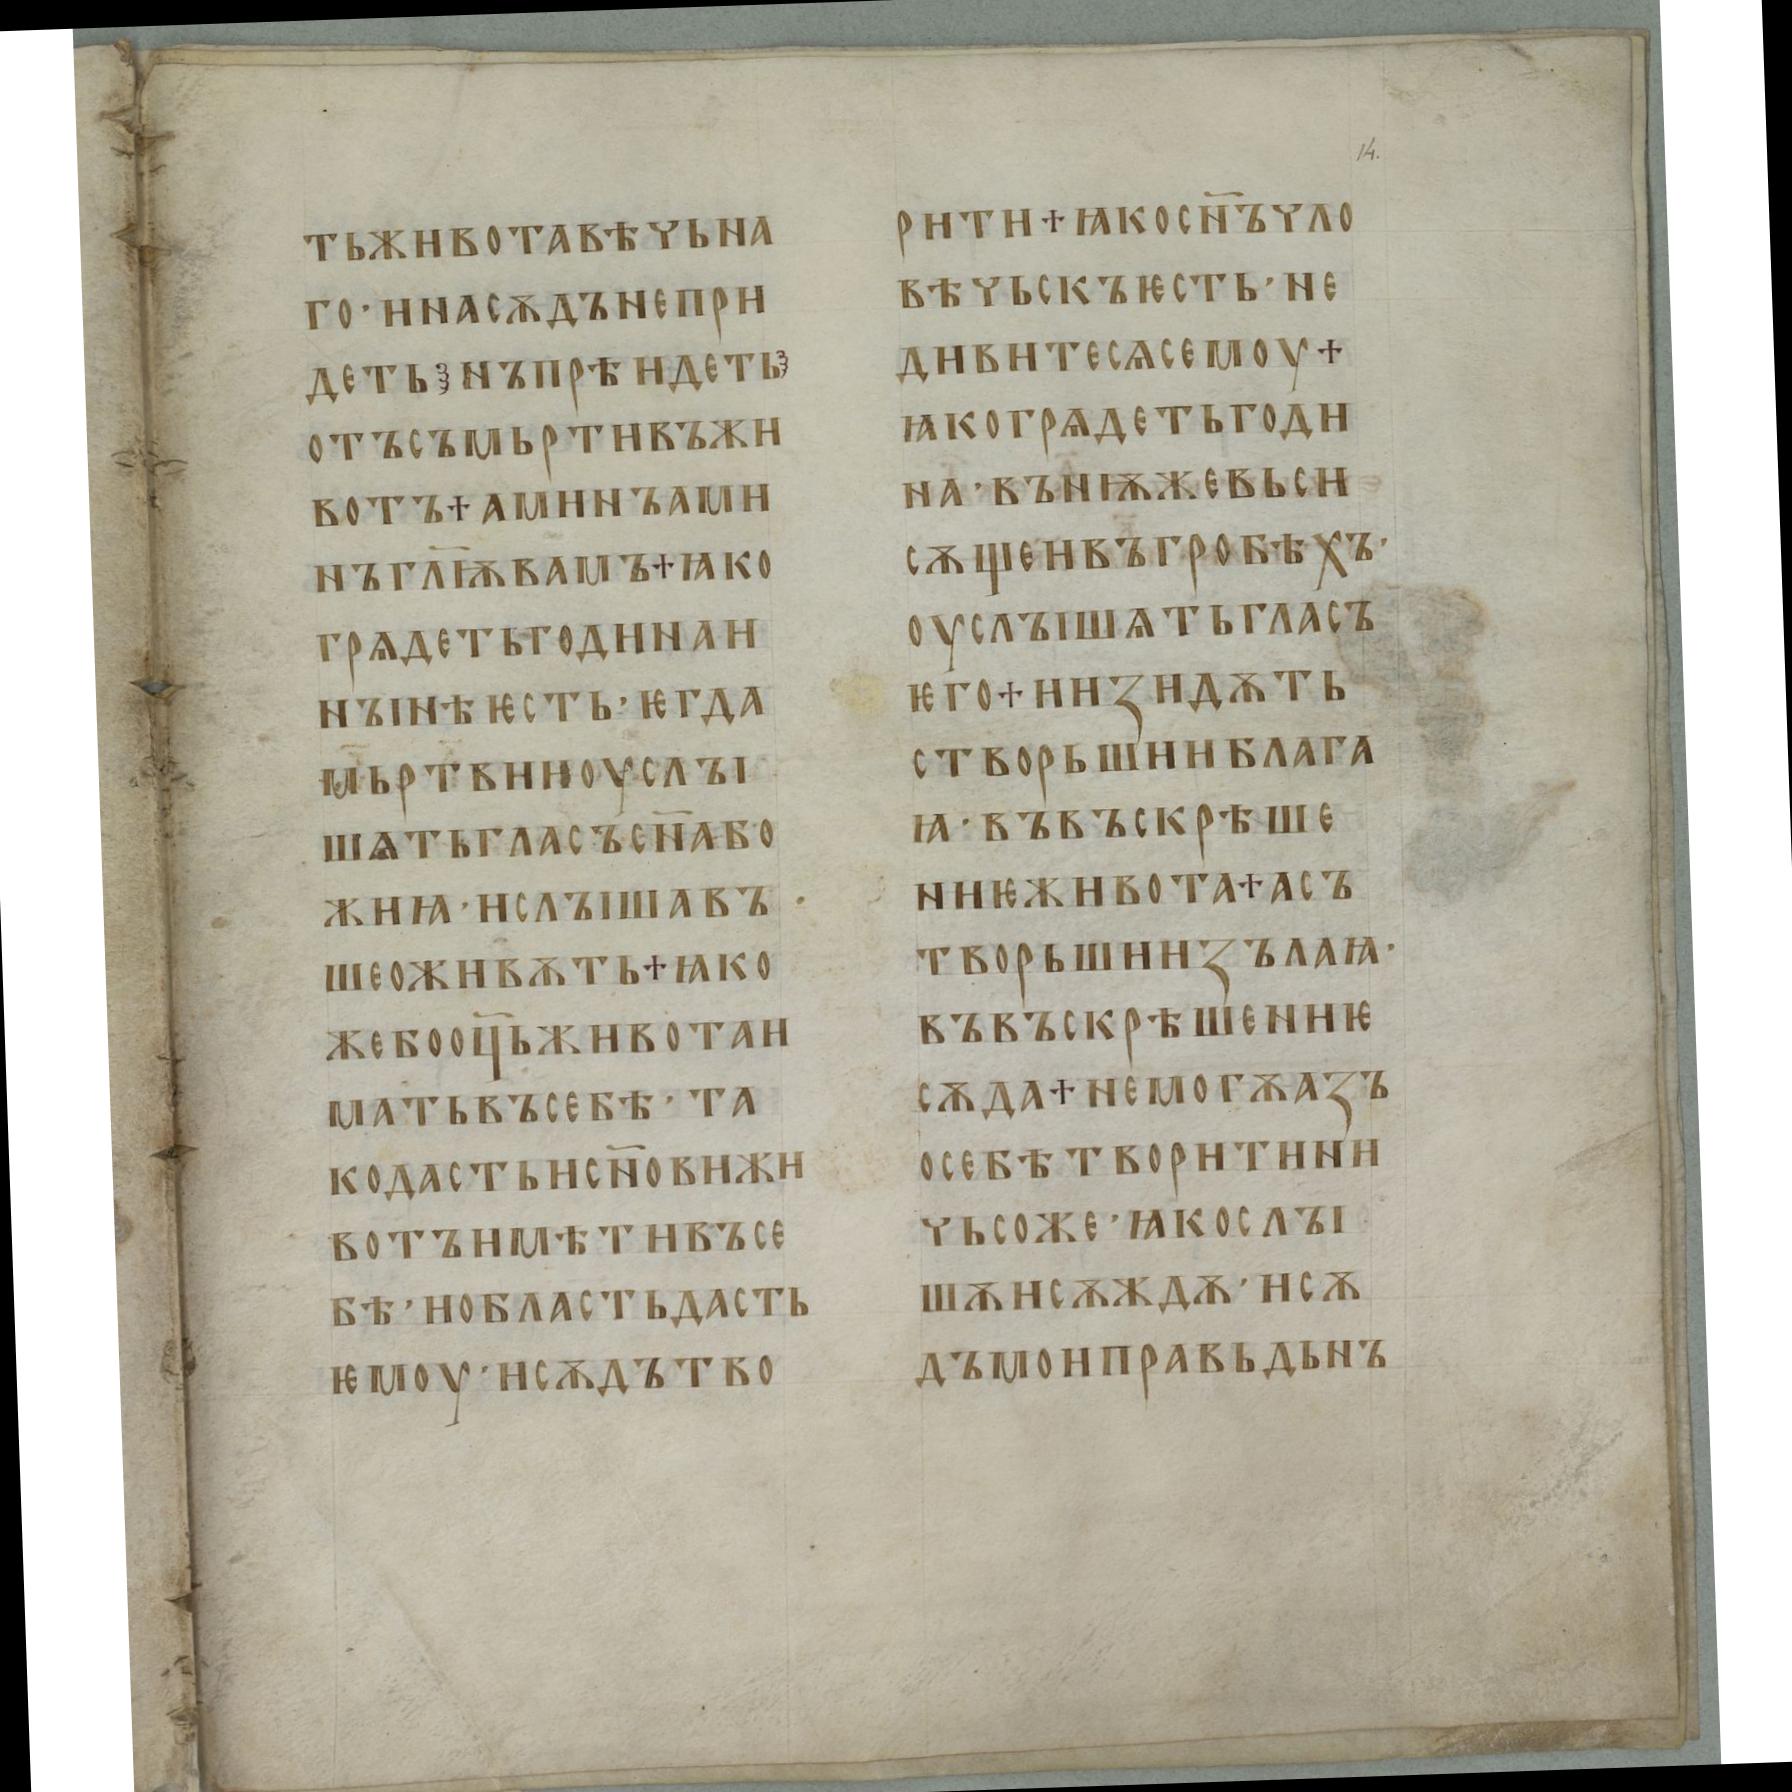 14.
тьживотавѣчьна
го·инасѫдънепри
деть⁘нъпрѣидеть⁘
отъсъмьртивъжи
вотъ+аминъами
нъгл҃ѭвамъ+ꙗко
грѧдетьгодинаи
нꙑнѣѥсть·ѥгда
мьртвииоуслꙑ
шѧтьгласъсн҃або
жиꙗ·ислꙑшавъ·
шеоживѫть+ꙗко
жебооц҃ьживотаи
матьвъсебѣ·та
кодастьисн҃овижи
вотъимѣтивъсе
бѣ·иобластьдасть
ѥмоу·исѫдътво
рити+ꙗкосн҃ъчло
вѣчьскъѥсть·не
дивитесѧсемоу+
ꙗкогрѧдетьгоди
на·вънѭжевьси
сѫщеивъгробѣхъ·
оуслꙑшѧтьгласъ
ѥго+иизидѫть
створьшииблага
ꙗ·въвъскрѣше
ниѥживота+асъ
творьшиизълаꙗ·
въвъскрѣшениѥ
сѫда+немогѫазъ
осебѣтворитини
чьсоже·ꙗкослꙑ
шѫисѫждѫ·исѫ
дъмоиправьдьнъ